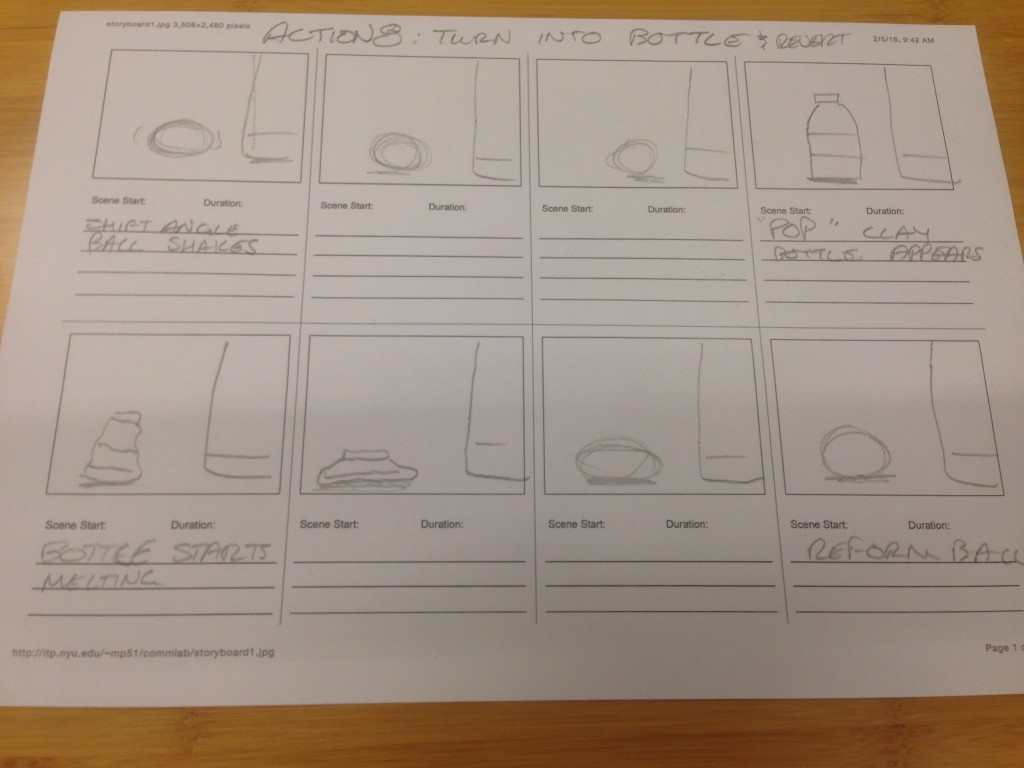 storyboard1.jpg 3,508×2,480 pixels
ACTION8: TURN INTO BOTTLE & REVERT
2/5/16, 9:42 AM
Scene Start: Duration:
SHIFT ANGLE
BALL SHAKES
Scene Start: Duration:
Scene Start: Duration:
Scene Start: Duration:
"POP" CLAY
BOTTLE APPEARS
Scene Start: Duration:
BOTTLE STARTS
MELTING
Scene Start: Duration:
Scene Start: Duration:
Scene Start: Duration:
REFORM BALL
http://itp.nyu.edu/~mp51/commlab/storyboard1.jpg
Page 1 o